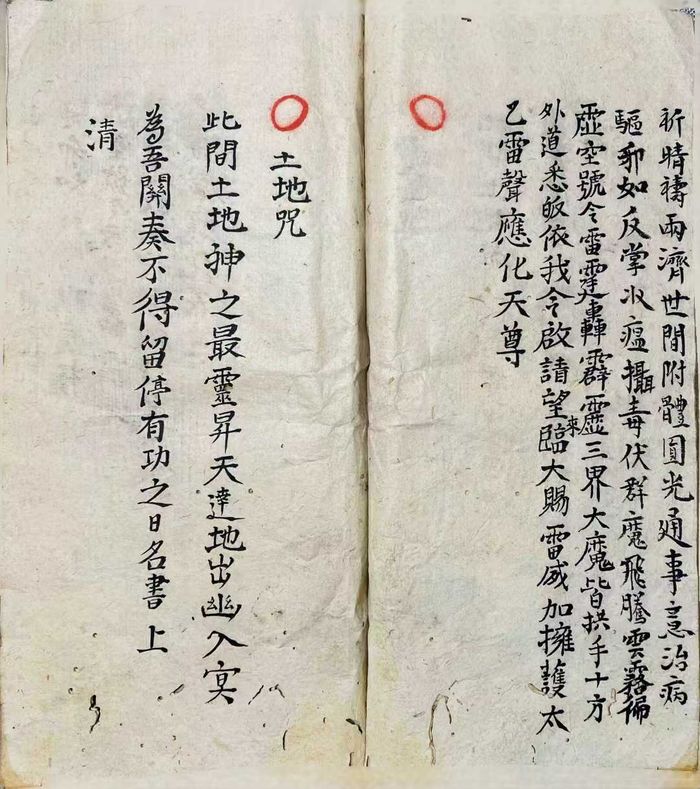 祈晴禱雨濟世間附體圓光通事意治病
驅邪如反掌收瘟攝毒伏群魔飛騰雲霧徧
虛空號令雷霆轟霹靂三界大魔皆拱手十方
外道悉皈依我今啟請望來臨大賜雷威加擁護太
乙雷聲應化天尊
土地咒
此間土地神之最靈昇天達地出幽入冥
為吾關奏不得留停有功之日名書上
清